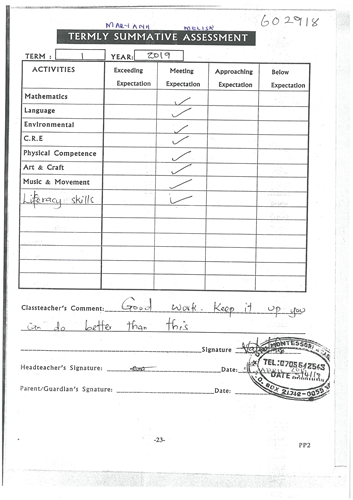 602918
MARYANN
TERMLY SUMMATIVE ASSESSMENT
TERM : 1 YEAR: 2019
ACTIVITIES Exceeding Expectation Meeting Expectation Approaching Expectation Below Expectation
Mathematics ✓
Language ✓
Environmental ✓
C.R.E ✓
Physical Competence ✓
Art & Craft ✓
Music & Movement ✓
Literacy skills ✓
Classteacher's Comment: Good work. Keep it up you
can do better than this
Signature
Headteacher's Signature: Date:
MONTESSORI
TEL:0705642563
DATE
Parent/Guardian's Signature: Date:
-23-
PP2